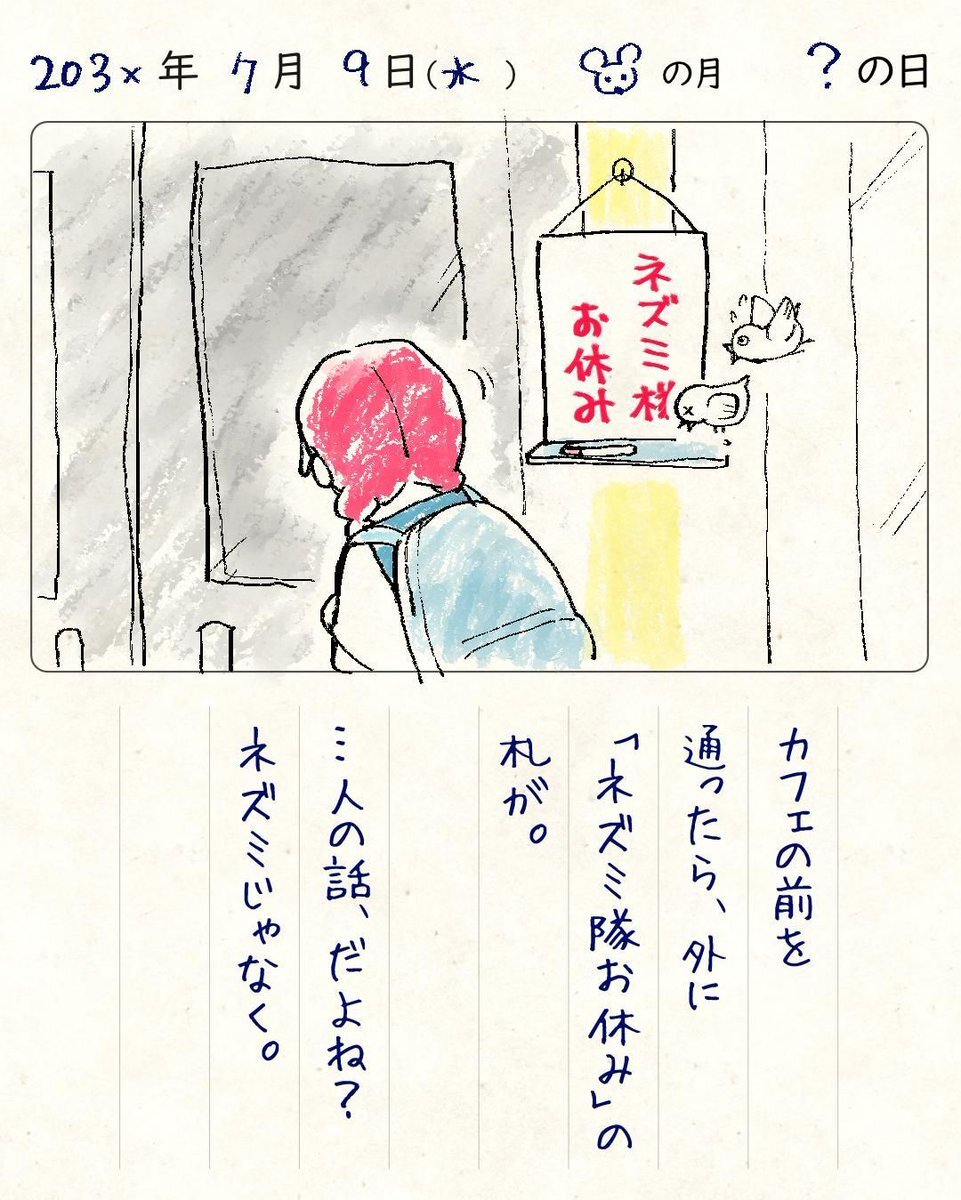 203x年 7月 9日(水) の月 ?の日
ネズミ様
お休み
カフェの前を
通ったら、外に
「ネズミ隊お休み」の
札が。
…人の話、だよね?
ネズミじゃなく。